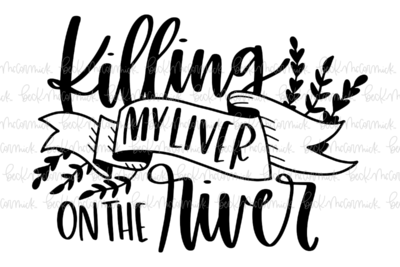 Killing
MY LIVER
ON THE river